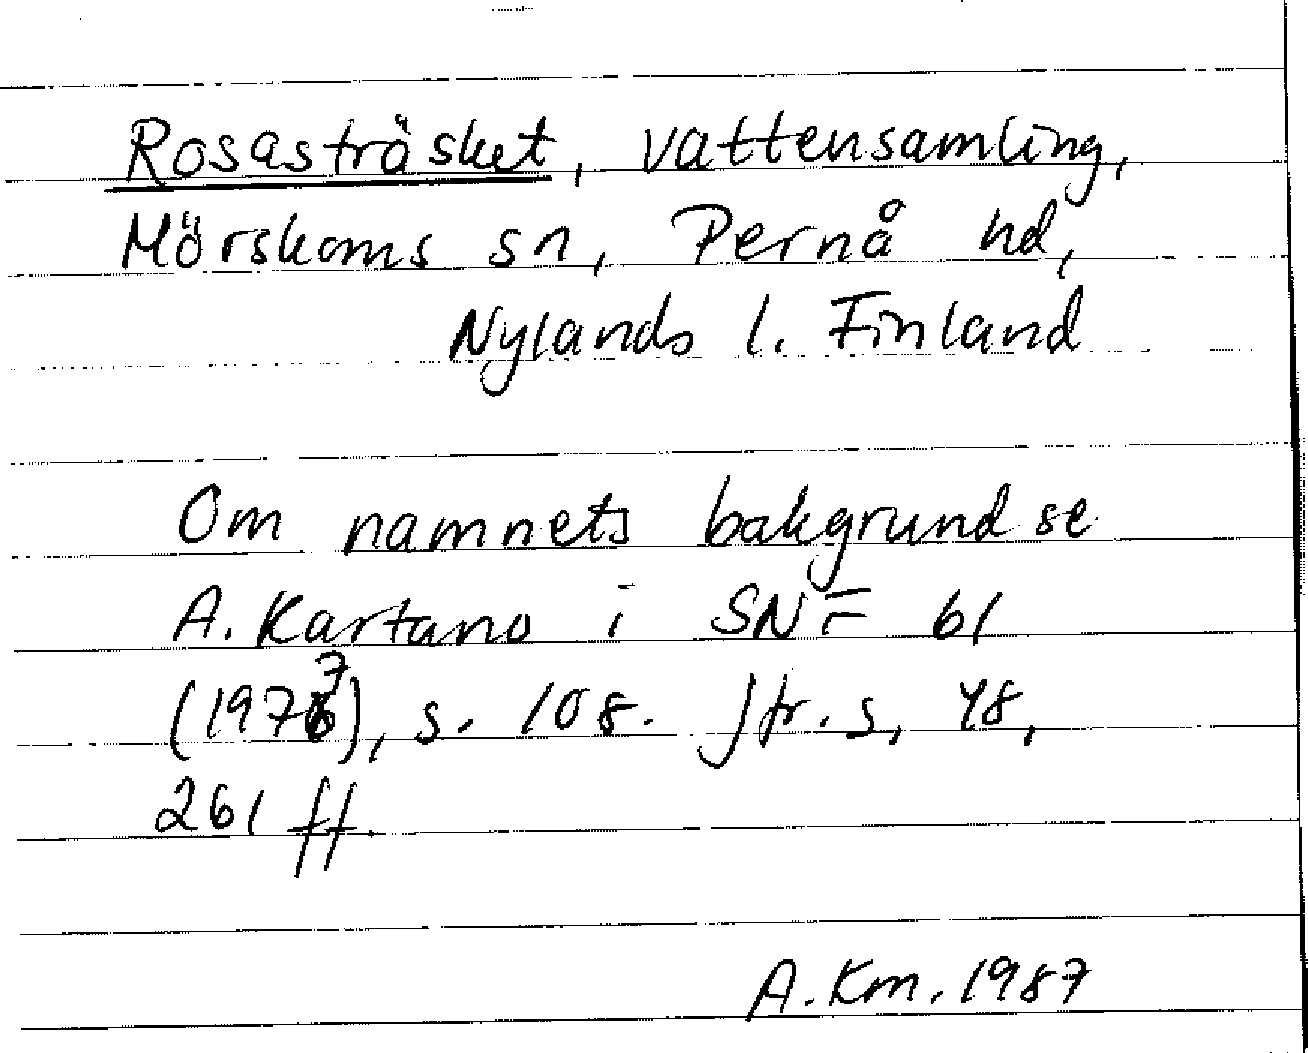 Rosasträsket, vattensamling,
Mörskoms sn, Pernå hd,
Nylands l. Finland
Om namnets bakgrund se
A. Kartano i SNF 61
(1977), s. 108. Jfr. s. 48,
261 ff.
A. Km. 1987